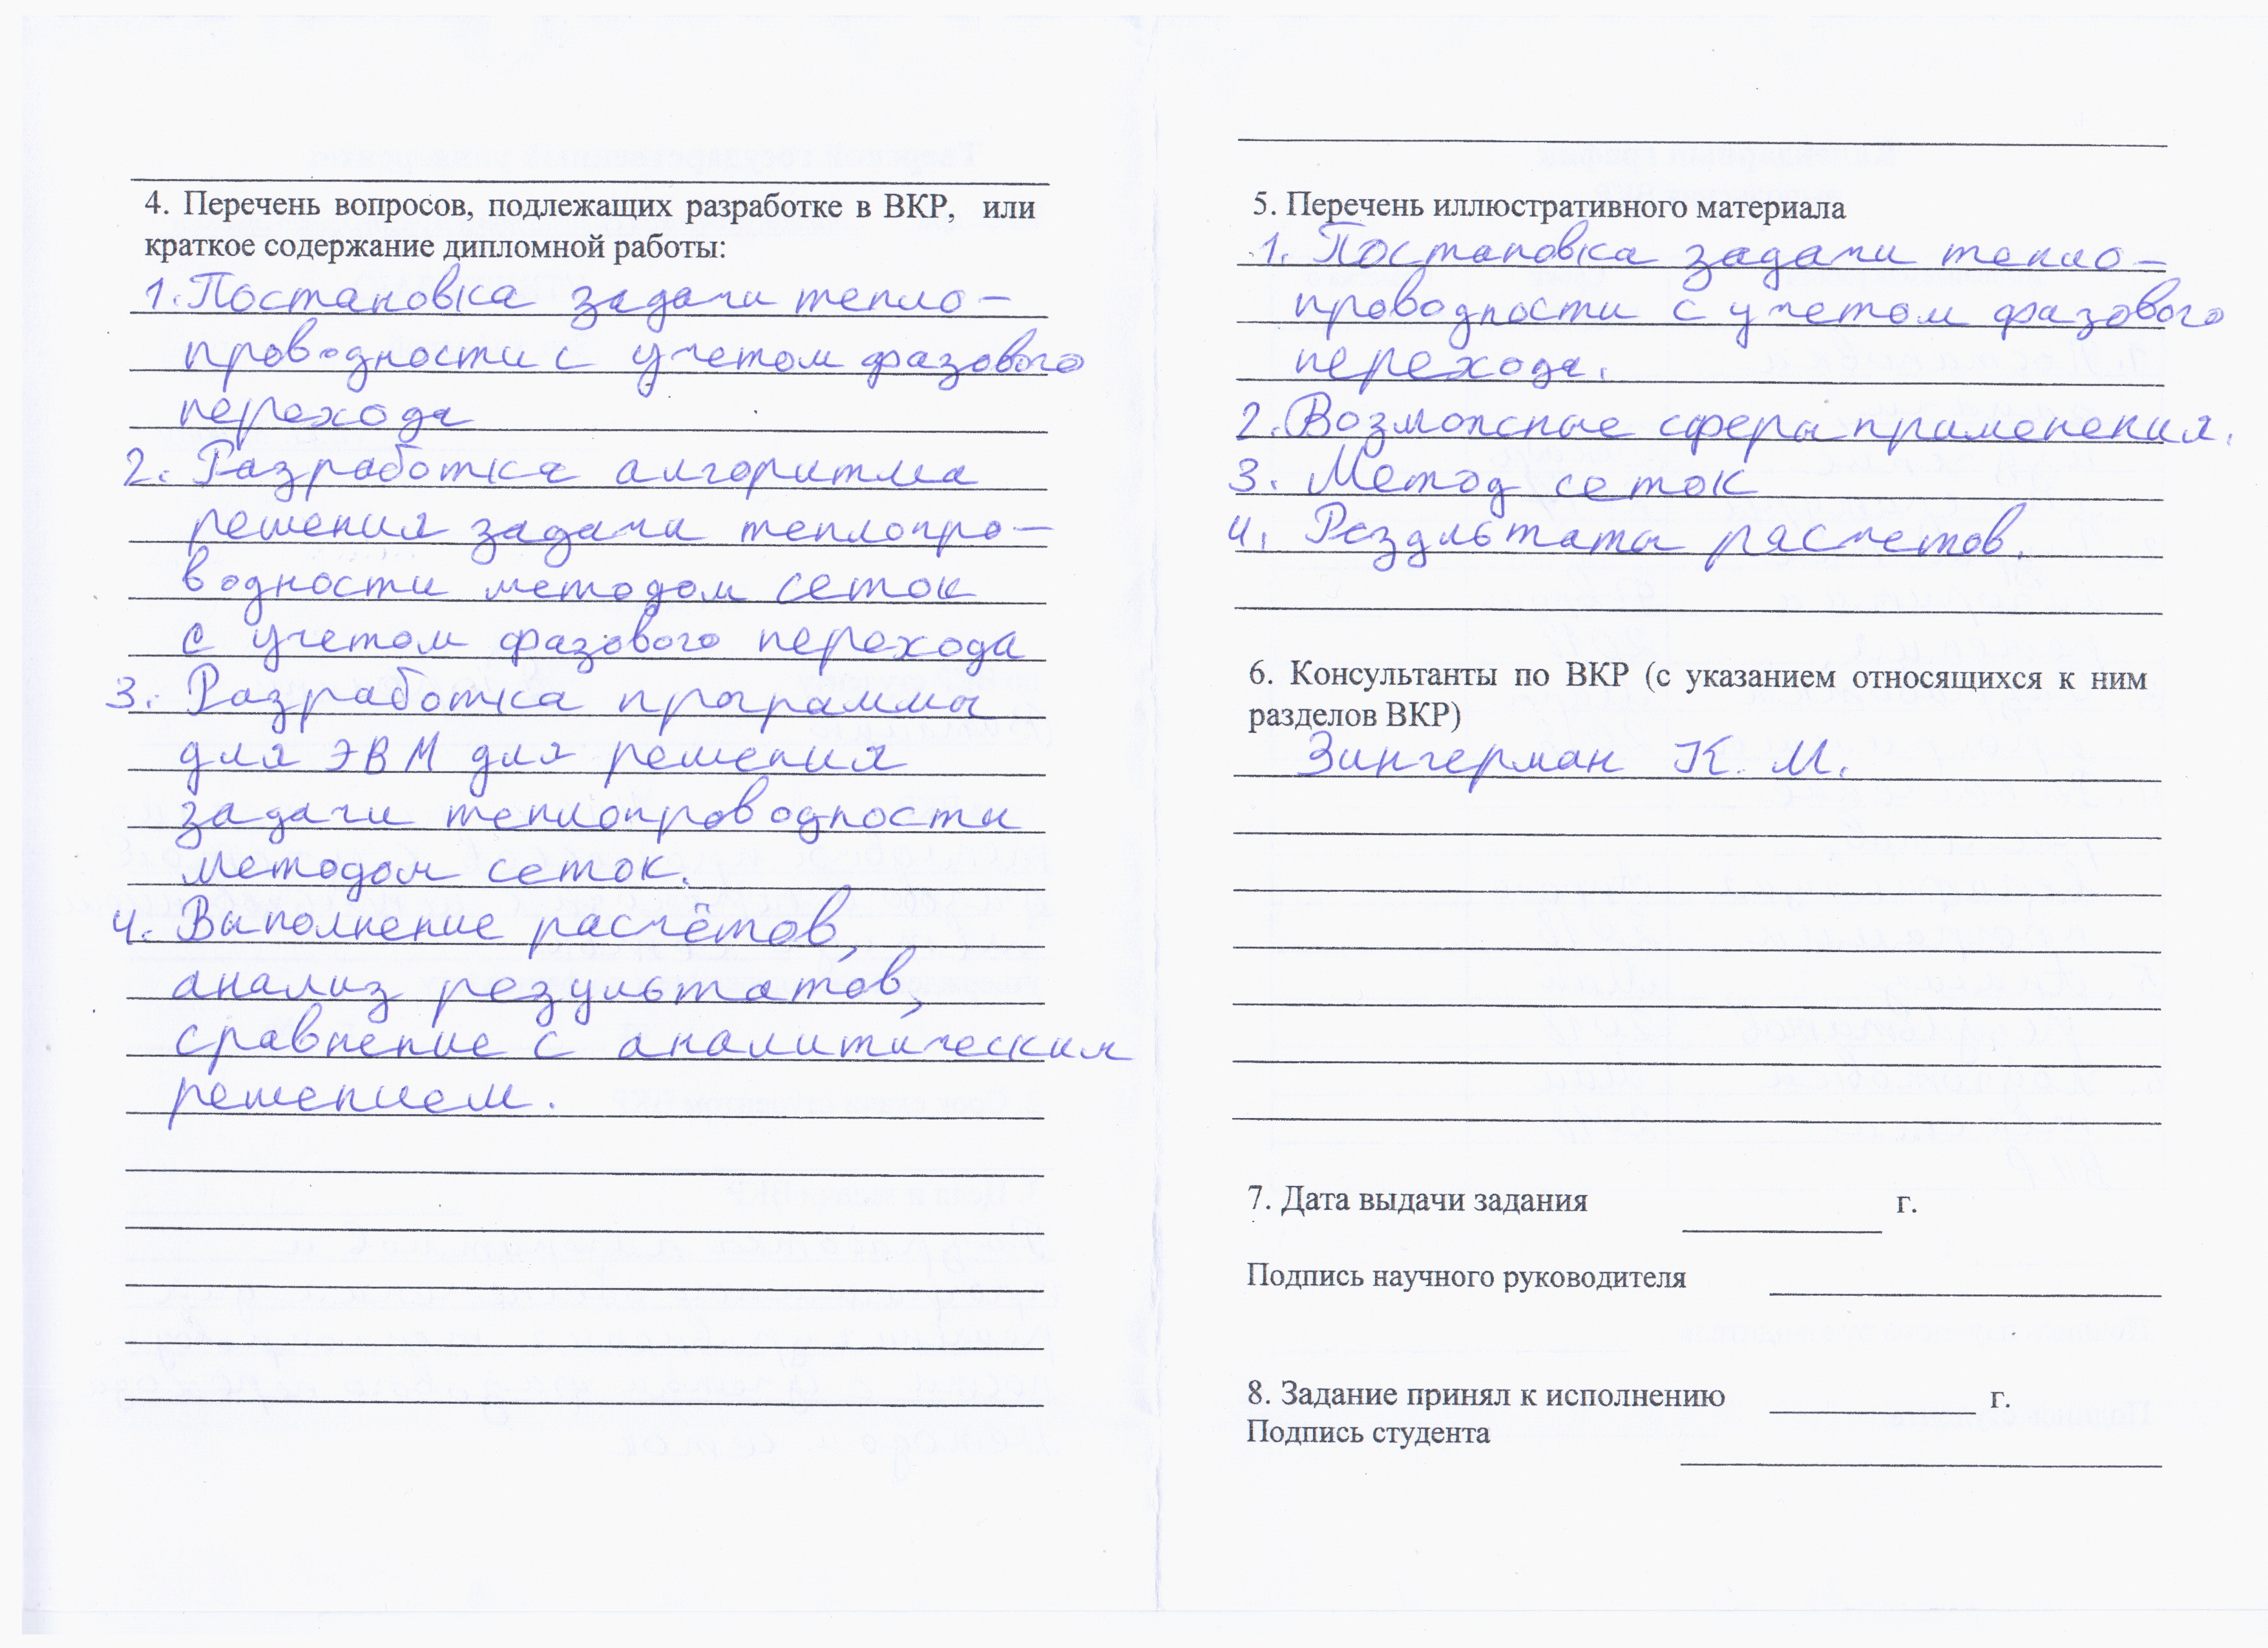 4. Перечень вопросов, подлежащих разработке в ВКР, или
краткое содержание дипломной работы:
1. Постановка задачи тепло-
проводности с учетом фазового
перехода
2. Разработка алгоритма
решения задачи теплопро-
водности методом сеток
с учетом фазового перехода
3. Разработка программы
для ЭВМ для решения
задачи теплопроводности
методом сеток.
4. Выполнение расчётов,
анализ результатов,
сравнение с аналитическим
решением.
5. Перечень иллюстративного материала
1. Постановка задачи тепло-
проводности с учетом фазового
перехода.
2. Возможные сферы применения.
3. Метод сеток
4. Результаты расчетов.
6. Консультанты по ВКР (с указанием относящихся к ним
разделов ВКР)
Зингерман К. М.
7. Дата выдачи задания г.
Подпись научного руководителя
8. Задание принял к исполнению г.
Подпись студента